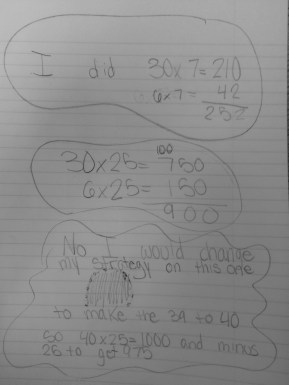 I did 30x7=210
6x7= 42
252
100
30x25= 750
6x25= 150
900
No I would change
my strategy on this one
to make the 39 to 40
so 40x25=1000 and minus
25 to get 975